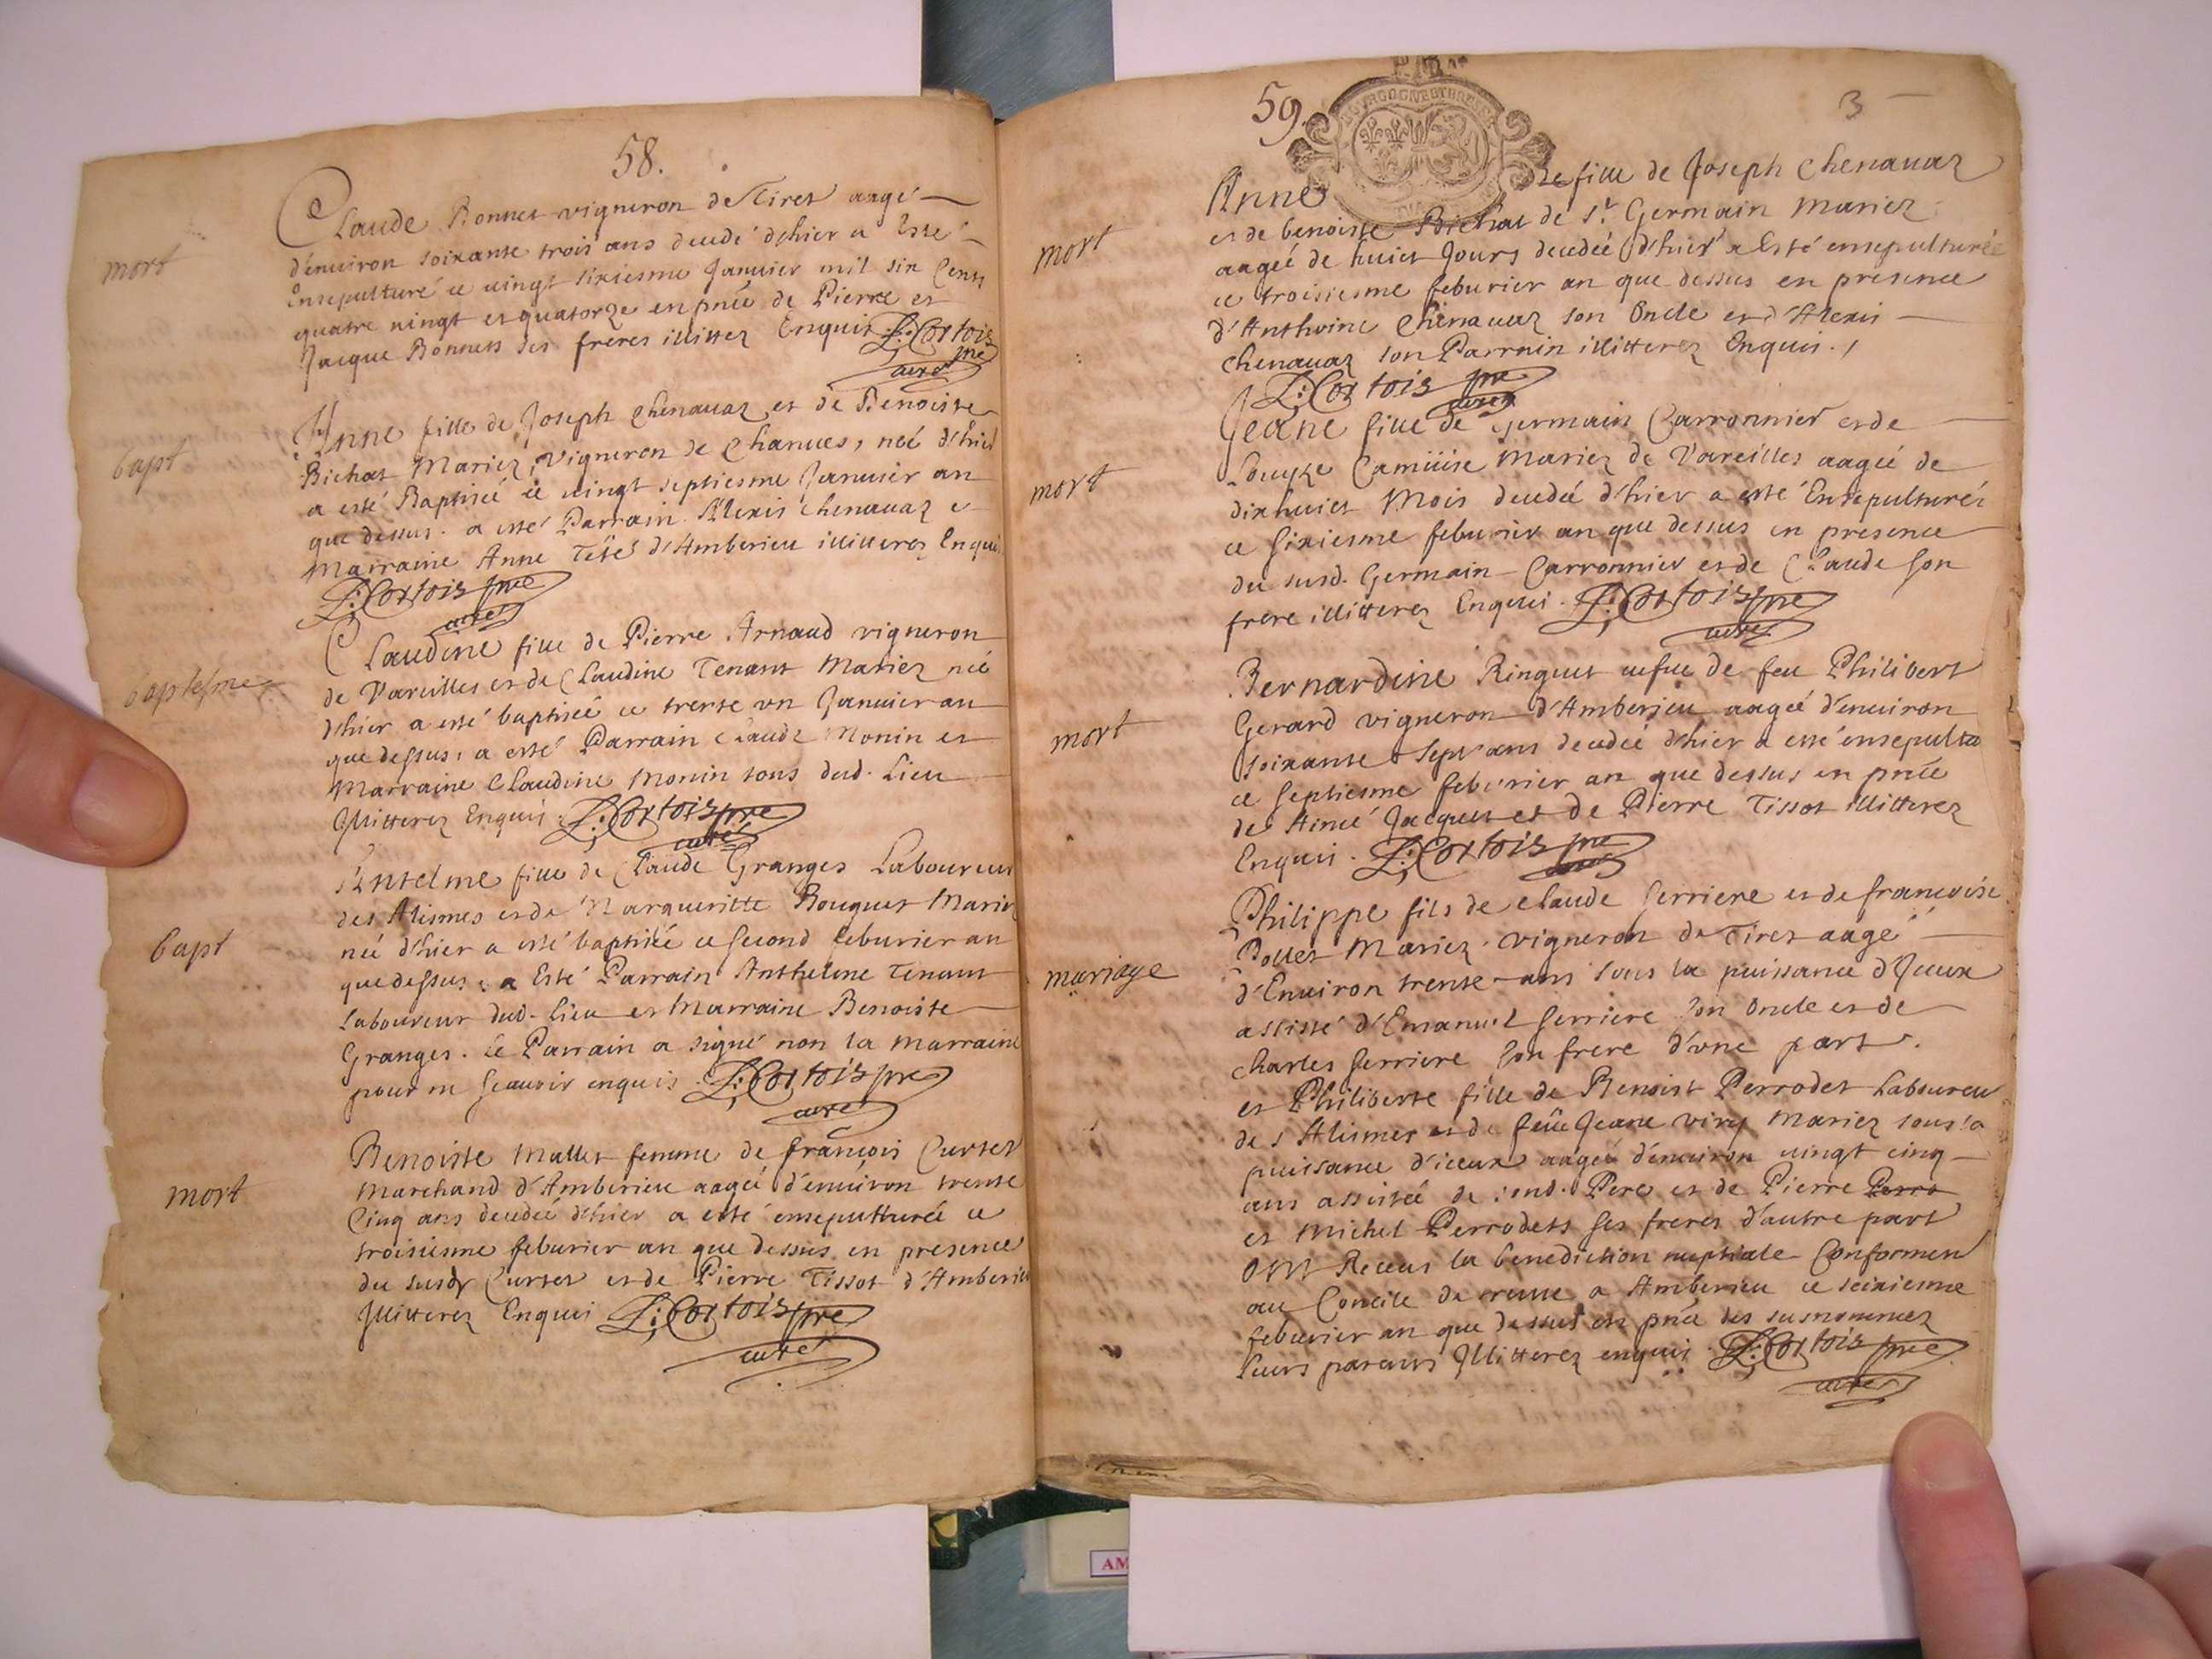 58.
mort
Claude Bonnet vigneron de Tiret aagé
d'enuiron soixante trois ans decedé d'hier a Esté
Ensepulturé ce vingt sixiesme Januier mil six Cents
quatre vingt et quatorze en pnce de Pierre et
Jacque Bonnets ses freres illitterez Enquis. L: Cortois
pre
curé
bapt
Anne fille de Joseph Chenauaz et de Benoiste
Bichat Mariez, Vigneron de Chanues, neé d'hier
a esté Baptiseé ce vingt septiesme Januier an
que dessus. a esté Parrain Alexis Chenauaz e
Marraine Anne Teté d'Amberieu illitterez Enqui
L: Cortois pre
curé
baptesme
Claudine fille de Pierre Arnaud vigneron
de Vareilles et de Claudine Tenant Mariez neé
d'hier a esté baptiseé ce trente vn Januier an
que dessus, a esté Parrain Claude Monin et
Marraine Claudine Monin tous dud. Lieu
Jllitterez Enquis. L: Cortois pre
curé
bapt
Anselme fille de Claude Granges Laboureur
des Alismes et de Margueritte Bouquet Mariez
neé d'hier a esté baptiseé ce second feburier an
que dessus, a Esté Parrain Anthelme Tenant
Laboureur dud. Lieu et Marraine Benoiste
Granges. Le Parrain a signé non la Marraine
pour ne sçauoir enquis. L: Cortois pre
curé
mort
Benoiste Mallet femme de françois Curtet
Marchand d'Amberieu aageé d'enuiron trente
Cinq ans decedeé d'hier a esté ensepultureé ce
troisiesme feburier an que dessus en presence
du susdt Curtet et de Pierre Tissot d'Amberieu
Jllitterez Enquis L: Cortois pre
curé
59.
3
mort
Anne fille de Joseph Chenauaz
et de benoiste Bichat de St Germain Mariez
aageé de huict Jours decedeé d'hier a Esté ensepultureé
ce troisiesme feburier an que dessus en presence
d'Anthoine Chenauaz son Oncle et d'Alexis
Chenauaz son Parrain illitterez Enquis.
L: Cortois pre
curé
mort
Jeane fille de Germain Carronnier et de
Louyse Camüise Mariez de Vareilles aageé de
dixhuict Mois decedeé d'hier a esté Ensepultureé
ce sixiesme feburier an que dessus en presence
du susd. Germain Carronnier et de Claude son
frere illitterez Enquis. L: Cortois pre
curé
mort
Bernardine Ringuet vefue de feu Philibert
Gerard vigneron d'Amberieu aageé d'enuiron
soixante sept ans decedeé d'hier a esté ensepultu
ce septiesme feburier an que dessus en pnce
de Aimé Jacquet et de Pierre Tissot illitterez
Enquis. L: Cortois pre
curé
mariage
Philippe fils de Claude Serriere et de francoise
Bollet Mariez vigneron de Tiret aagé
d'Enuiron trente ans sous la puissance d'Jceux
assisté d'Emanuel Serriere son Oncle et de
Charles Serriere son frere d'vne part.
et Philiberte fille de Benoist Perrodet Laboureur
des Alismes et de feüe Jeane Viry Mariez sous la
puissance d'iceux aageé d'enuiron vingt cinq
ans assisteé de sond. Pere et de Pierre Perro
et Michel Perrodets ses freres d'autre part
Ont Receus la benediction nuptiale Conformem
au Concile de trente a Amberieu ce seiziesme
feburier an que dessus en pnce des susnommez
leurs parents Jllitterez enquis. L: Cortois pre
curé